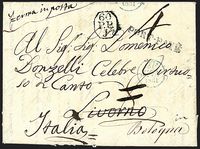 ferma in posta
60
PP
Al Sigr. Sigr. Domenico
Donzelli Celebre Virtuoso
di Canto
Livorno
Italia
Bologna